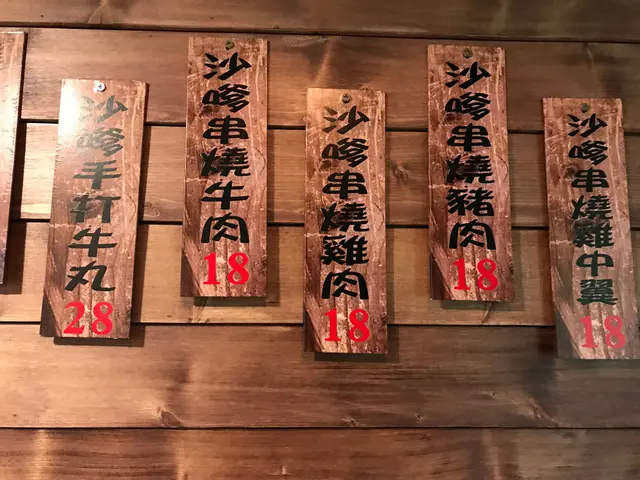 沙嗲手打牛丸
28
沙嗲串燒牛肉
18
沙嗲串燒雞肉
18
沙嗲串燒豬肉
18
沙嗲串燒雞中翼
18